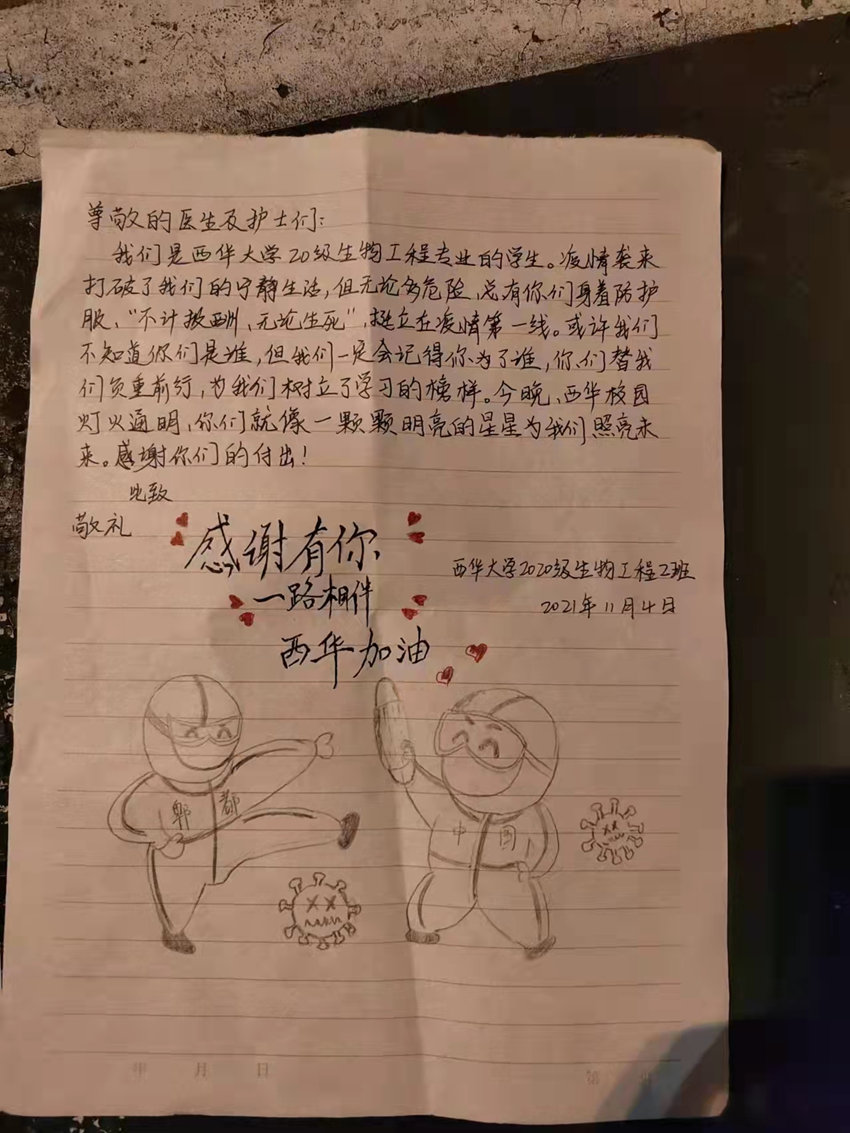 尊敬的医生及护士们：
我们是西华大学20级生物工程专业的学生。疫情袭来
打破了我们的宁静生活，但无论多危险，总有你们身着防护
服，“不计报酬，无论生死”，挺立在疫情第一线。或许我们
不知道你们是谁，但我们一定会记得你为了谁，你们替我
们负重前行，为我们树立了学习的榜样。今晚，西华校园
灯火通明，你们就像一颗颗明亮的星星为我们照亮未
来。感谢你们的付出！
此致
敬礼
感谢有你
西华大学2020级生物工程2班
一路相伴
2021年11月4日
西华加油
郫都
中国
年 月 日
第 页